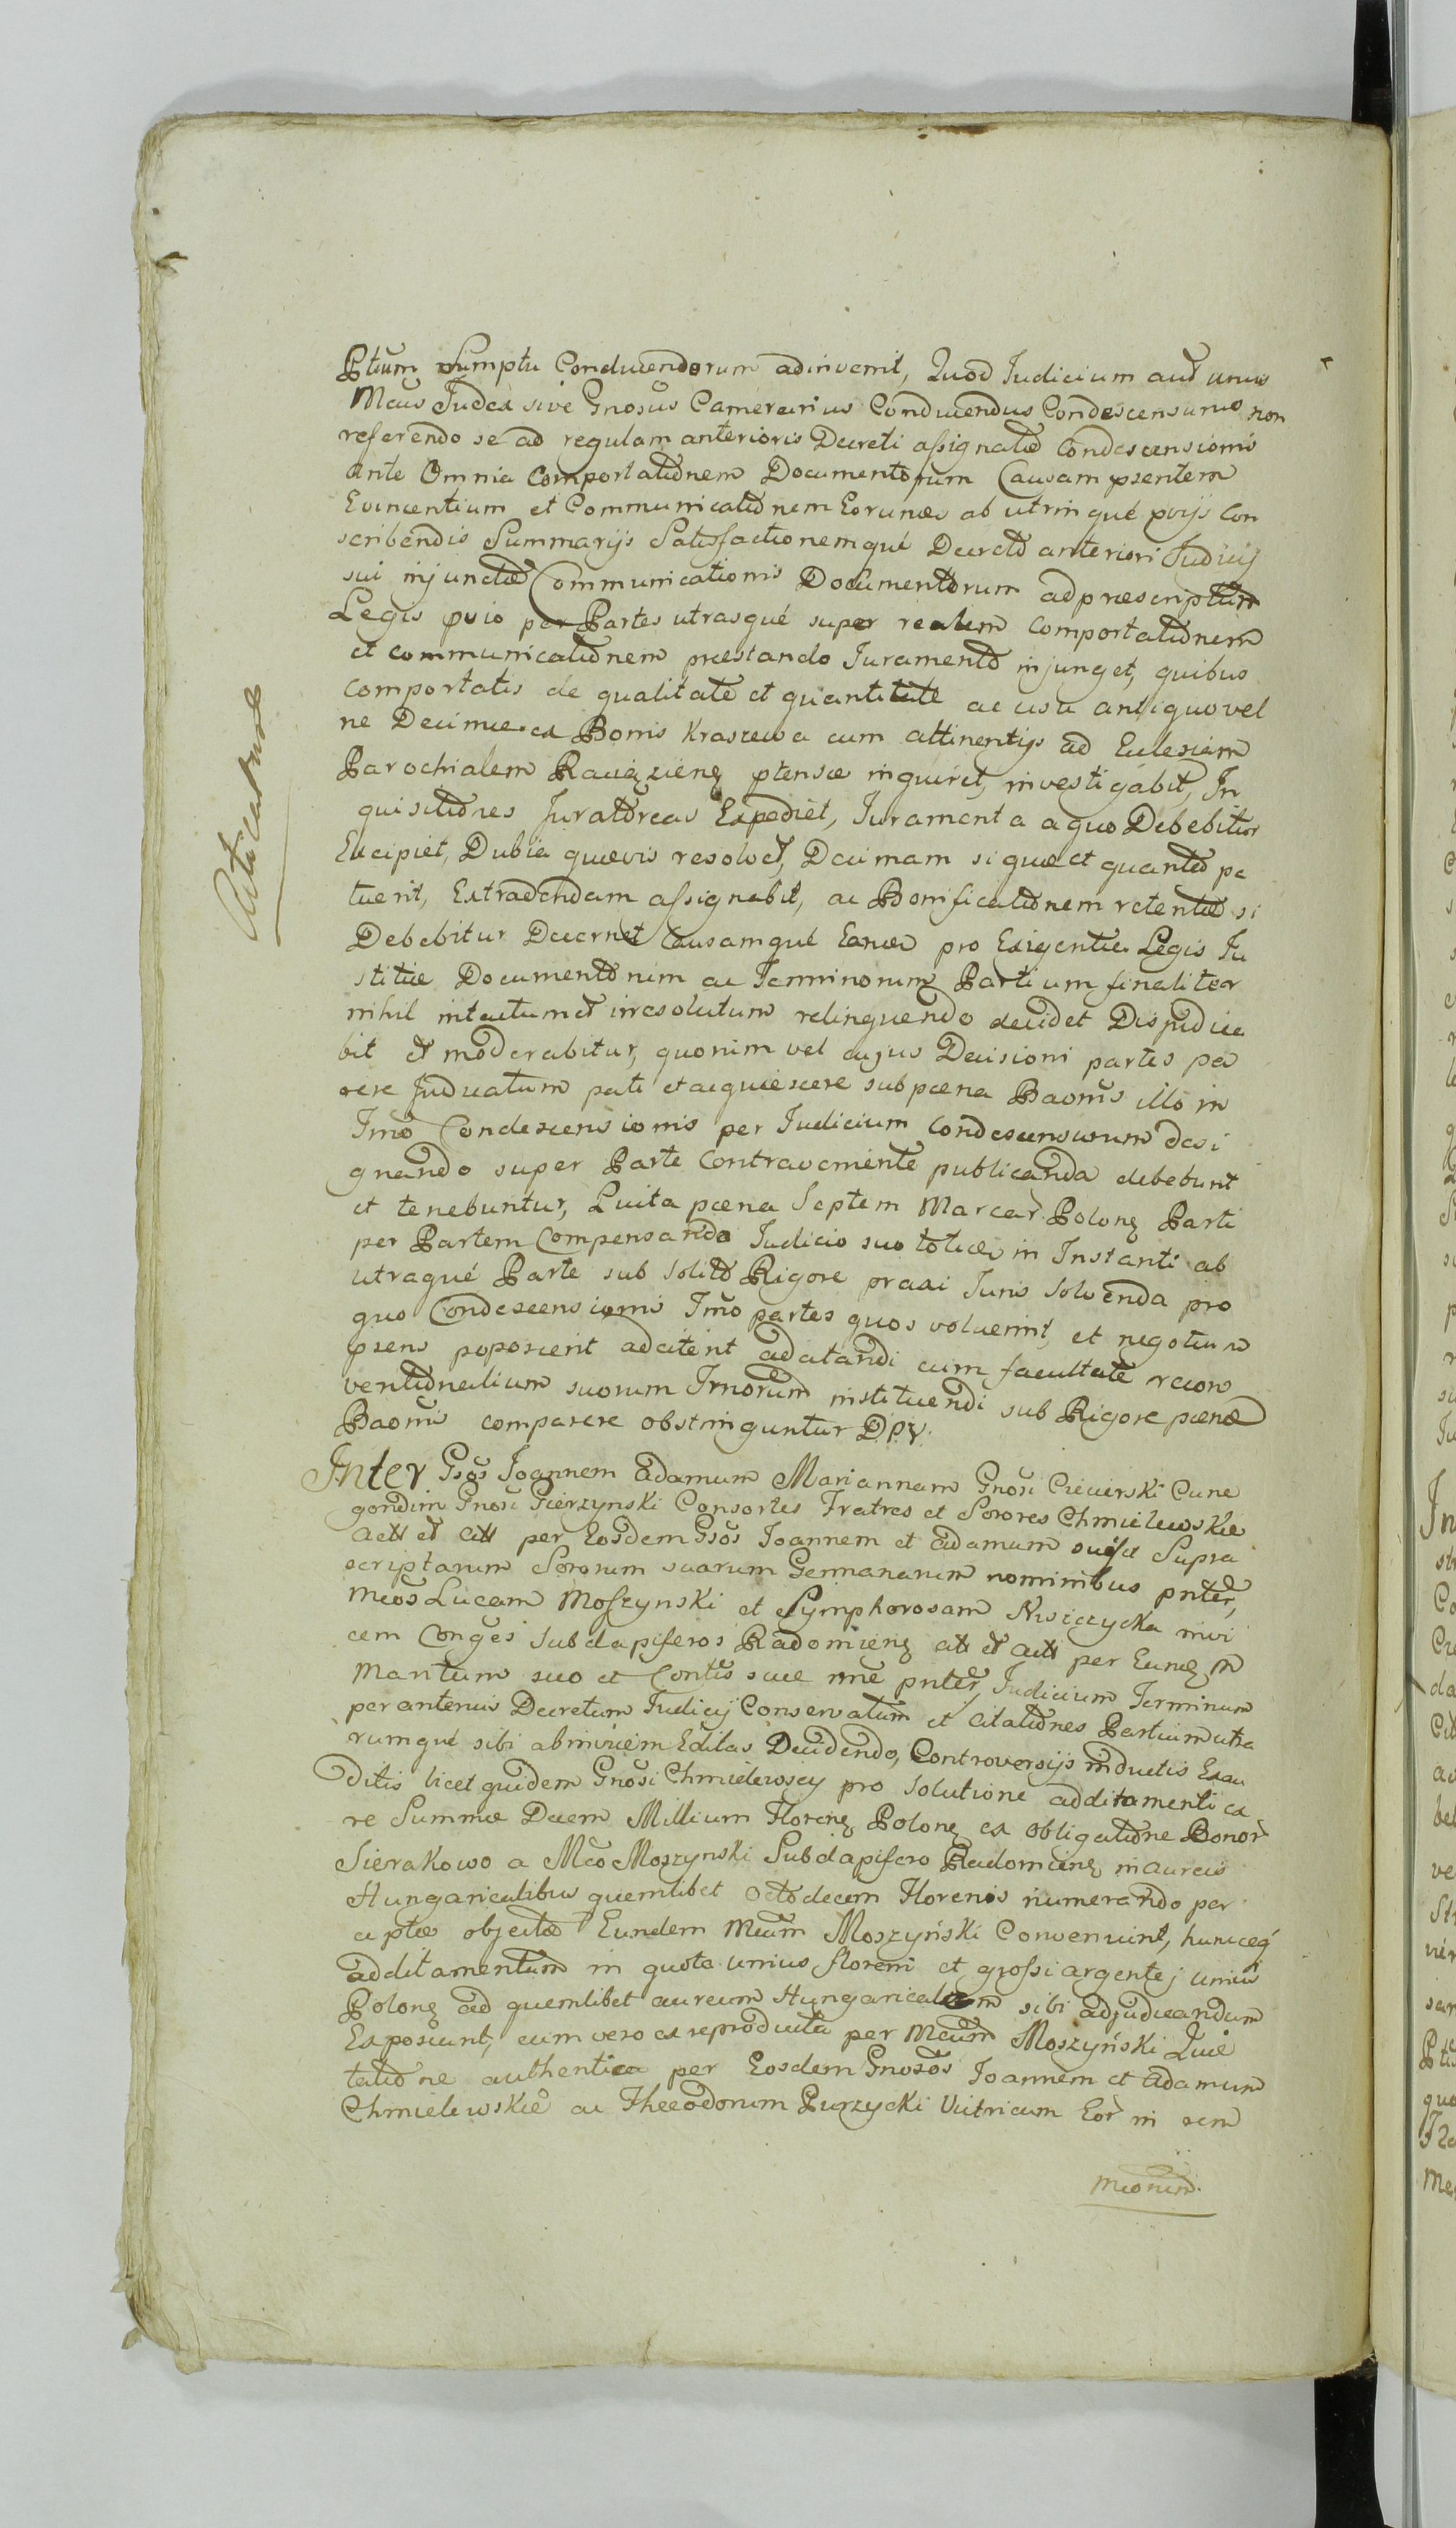 Ptium Sumptu Conducendorum adinvenit, Quod Judicium aut unus
Mcus Judex sive Gnosus Camerarius Conducendus Condescensurus non
referendo se ad regulam anterioris Decreti assignatæ Condescensionis
ante Omnia Comportationem Documentorum Causam psentem
Evincentium et Communicationem Eorundem ab utrinque pvijs con
scribendis Summarijs Satisfactionemque Decreto anteriori Judicij
sui injunctæ Communicationis Documentorum ad præscriptum
Legis pvio per Partes utrasque super realem comportationem
et communicationem præstando Juramento injunget, quibus
comportatis de qualitate et quantitate ac usu antiquo vel
ne Decimæ ex Bonis Kraszewa cum attinentijs ad Ecclesiam
Parochialem Raciązieng ptensæ inquiret, investigabit, In
quisitiones Juratoreas Expediet, Juramenta a quo Debebitur
Excipiet, Dubia quævis resolvet, Decimam si quæ et quanta pa
tuerit, Extradendam assignabit, ac Bonificationem retentæ si
Debebitur Decernet Causamque Eandem pro Exigentia Legis Ju
stitiæ Documentorum ac Terminorum Partium finaliter
nihil intactum et irresolutum relinquendo decidet Disjudica
bit et moderabitur, quorum vel cujus Decisioni partes pa
rere Judicatum pati et acquiescere sub pæna Baonis illo in
Tmo Condescensionis per Judicium Condescensurum desi
gnando super Parte Contraveniente publicanda debebunt
et tenebuntur, Luita pæna Septem Marcar Polong Parti
per Partem Compensando Judicio suo toties in Instanti ab
utraque Parte sub solito Rigore praxi Juris solvenda pro
quo Condescensionis Tmo partes quos voluerint, et negotium
psens poposcerit adcitent adcitandi cum facultate recon
ventionalium suorum Trnorum instituendi sub Rigore pænæ
Baonis comparere obstringuntur DPV.
Inter Gsos Joannem Adamum Mariannam Gnosi Cicierski Cune
gondim Gnosi Gierzynski Consortes Fratres et Sorores Chmielewskie
act et citt per Eosdem Gsos Joannem et Adamum suis et Supra
scriptarum Sororum suarum Germanarum nominibus pnter,
Mcos Lucam Moszynski et Symphorosam Niszczycka invi
cem Conges Subdapiferos Radomieng citt et act per Eundem
Maritum suo et Contis suæ nne pnter, Judicium Terminum
per anterius Decretum Judicij Conservatum et Citationes Partium utra
rumque sibi ab invicem Editas Decidendo, Controversijs inductis Exau
ditis licet quidem Gnosi Chmielewscy pro solutione additamenti ex
re Summæ Decem Millium Floreng Polong ex obligatione Bonor
Sierakowo a Mco Moszynski Subdapifero Radomieng in aureis
Hungaricalibus quemlibet octodecem Florenis numerando per
ceptæ objectæ Eundem Mcum Moszyński Convenerint, huncq
additamentum in quota unius floreni et grossi argentej unius
Polong ad quemlibet aureum Hungaricalem sibi adjudicandum
Exposcunt, cum vero ex reproducta per Mcum Moszyński Quie
tatione authentica per Eosdem Gnosos Joannem et Adamum
Chmielewskie ac Theodorum Purzycki Vitricum Eor in rem
meorum